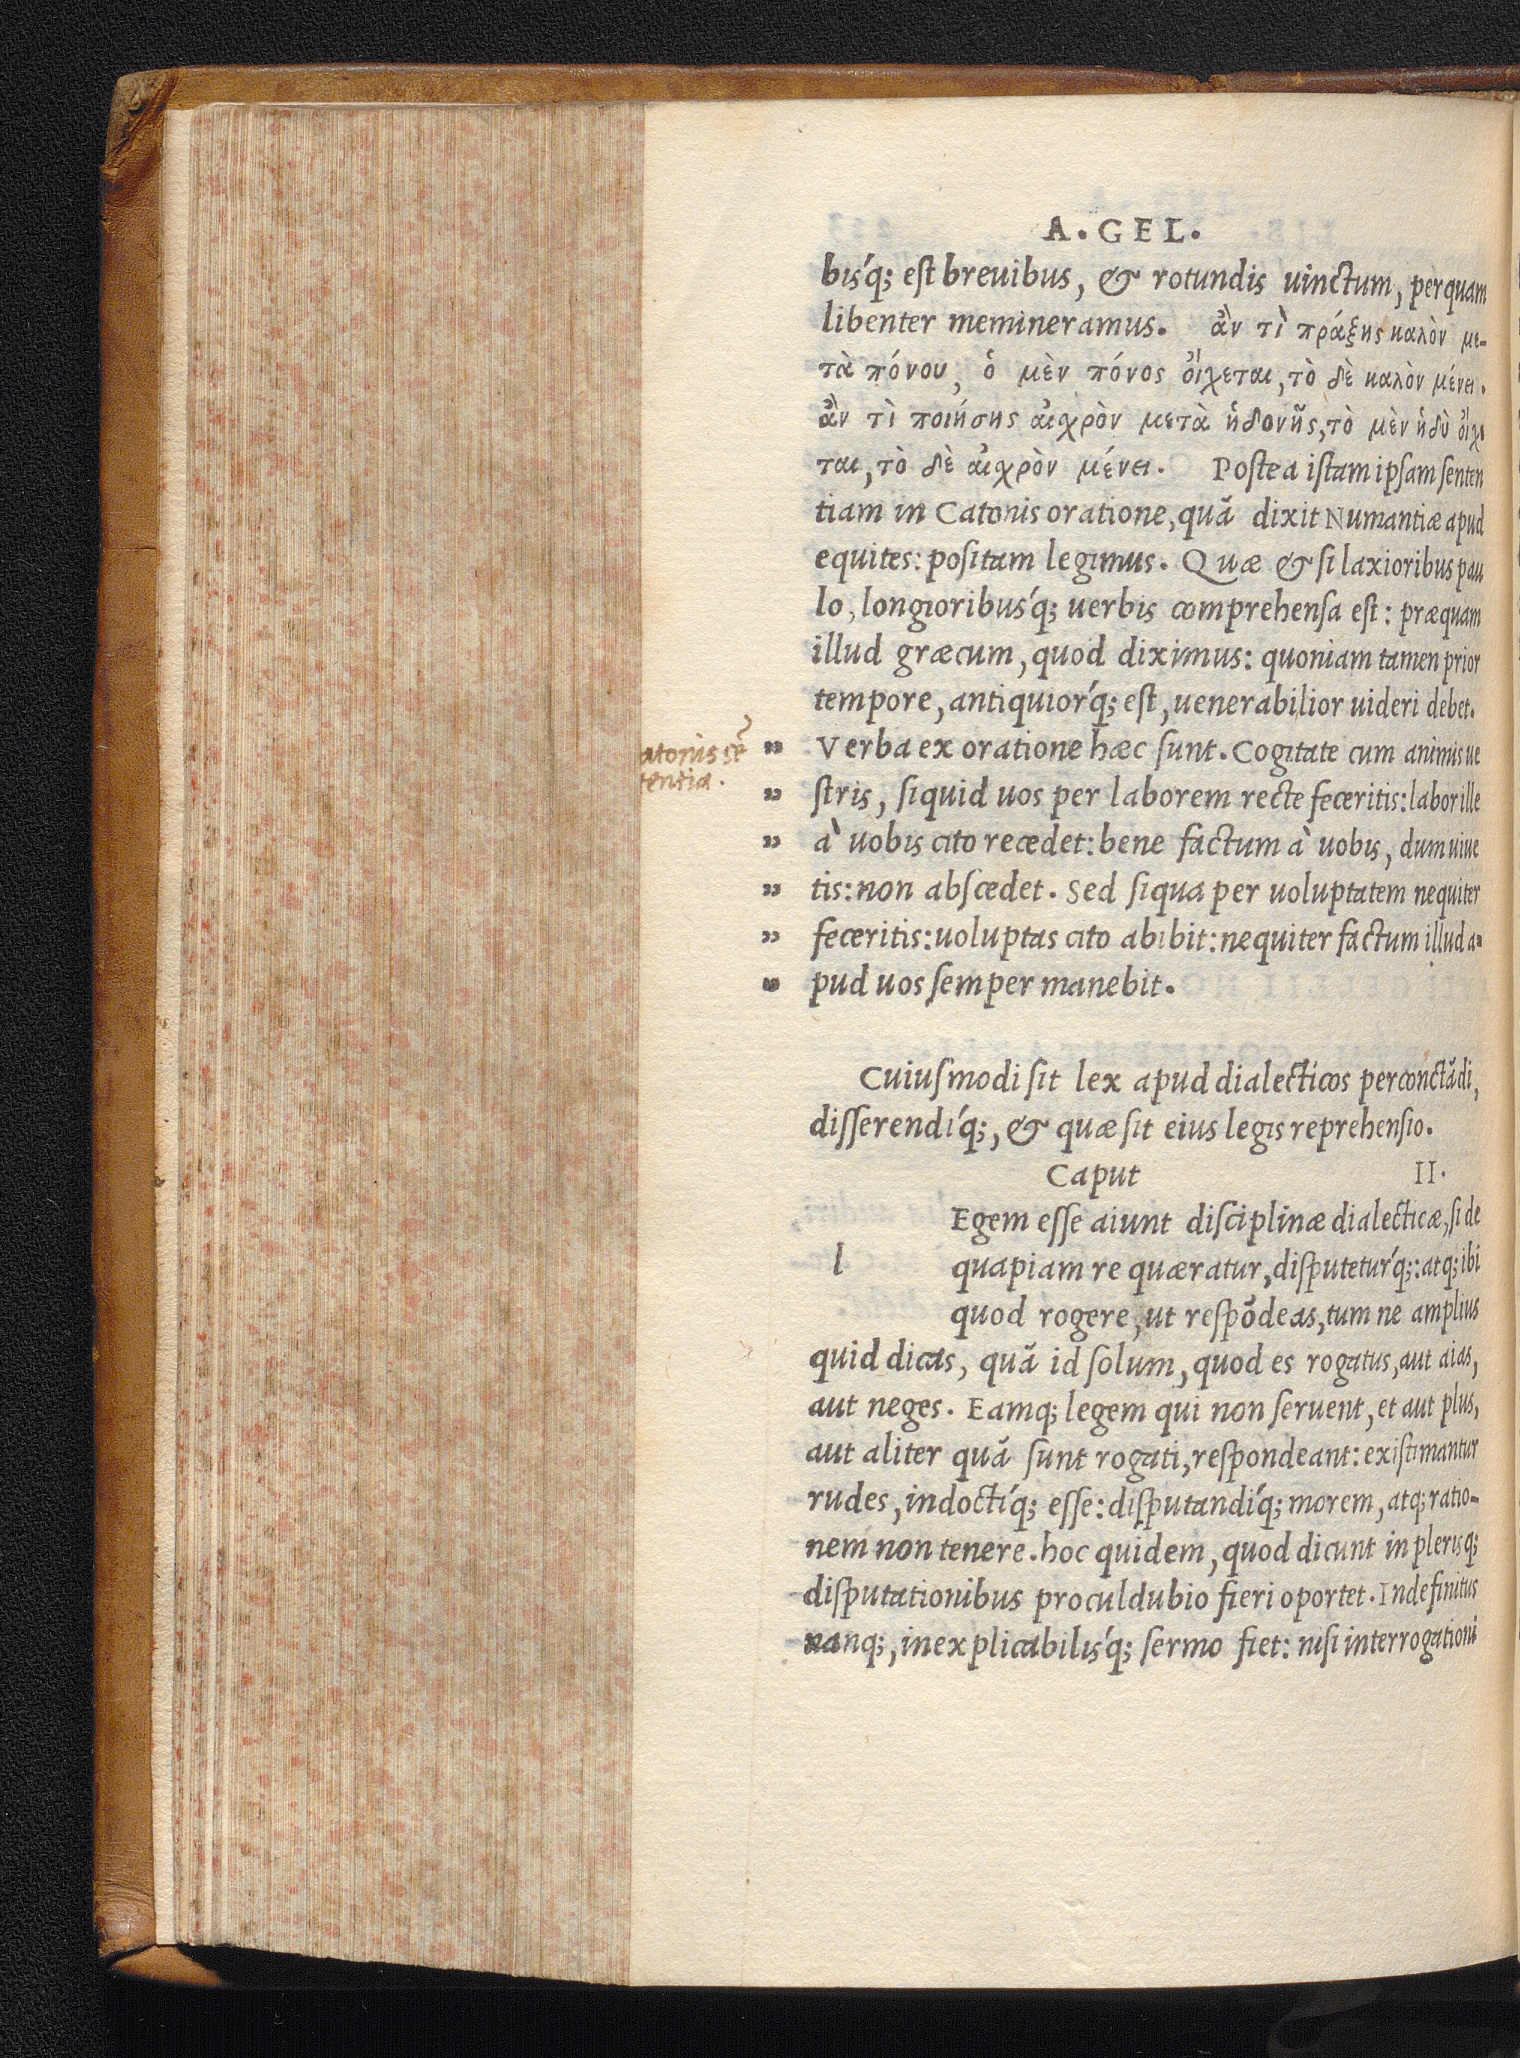 A. GEL.
bisq́; est breuibus, & rotundis uinctum, perquam
libenter memineramus. ἂν τὶ πράξης καλὸν με-
τὰ πόνου, ὁ μὲν πόνος οἴχεται, τὸ δὲ καλὸν μένει.
ἂν τὶ ποιήσης αἰχρὸν μετὰ ἡδονῆς, τὸ μὲν ἡδὺ οἴχε
ται, τὸ δὲ αἰχρὸν μένει. Postea istam ipsam senten
tiam in Catonis oratione, quā dixit Numantiæ apud
equites: positam legimus. Quæ & si laxioribus pau
lo, longioribusq́; uerbis comprehensa est: præquam
illud græcum, quod diximus: quoniam tamen prior
tempore, antiquiorq́; est, uenerabilior uideri debet.
atonis sē
tentia.
” Verba ex oratione hæc sunt. Cogitate cum animis ue
” stris, siquid uos per laborem recte feceritis: labor ille
” à uobis cito recedet: bene factum à uobis, dum uiue
” tis: non abscedet. Sed siqua per uoluptatem nequiter
” feceritis: uoluptas cito abibit: nequiter factum illud a-
” pud uos semper manebit.
Cuiusmodi sit lex apud dialecticos percōnctādi,
disserendíq;, & quæ sit eius legis reprehensio.
Caput II.
Egem esse aiunt disciplinæ dialecticæ, si de
l quapiam re quæratur, disputeturq́;: atq; ibi
quod rogere, ut respōdeas, tum ne amplius
quid dicas, quā id solum, quod es rogatus, aut aias,
aut neges. Eamq; legem qui non seruent, et aut plus,
aut aliter quā sunt rogati, respondeant: existimantur
rudes, indoctíq; esse: disputandíq; morem, atq; ratio-
nem non tenere. hoc quidem, quod dicunt in plerisq;
disputationibus proculdubio fieri oportet. Indefinitus
nanq;, inexplicabilisq́; sermo fiet: nisi interrogationi